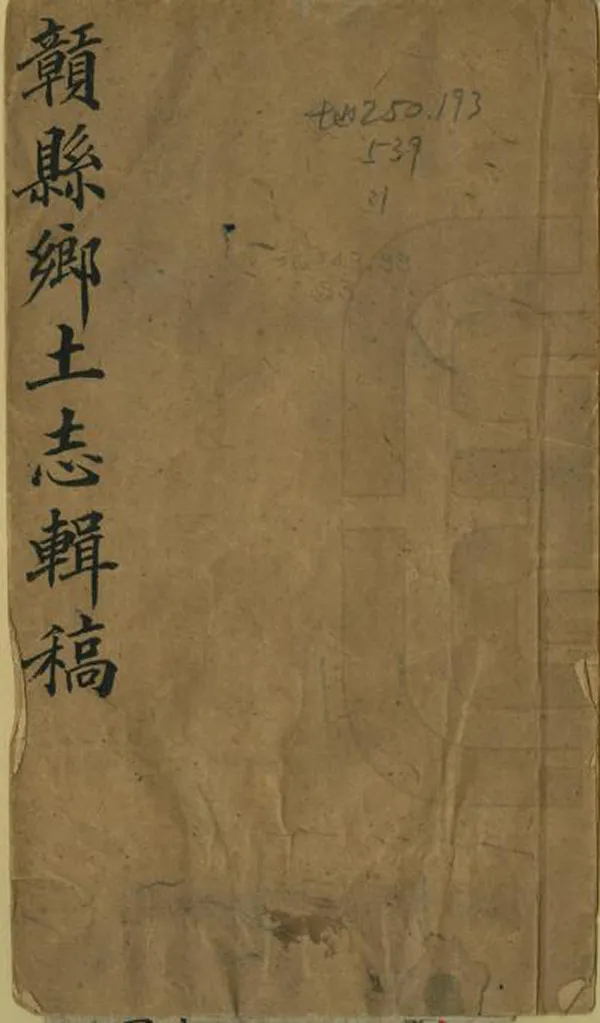 贛縣鄉土志輯稿
地250.193
539